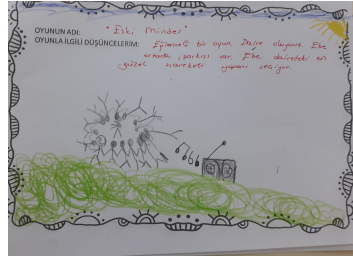 OYUNUN ADI: "Eski Minder"
OYUNLA İLGİLİ DÜŞÜNCELERİM: Eğlenceli bir oyun. Daire oluyoruz. Ebe
ortada, şarkısı var. Ebe dairedeki en
güzel hareketi yapanı seçiyor.